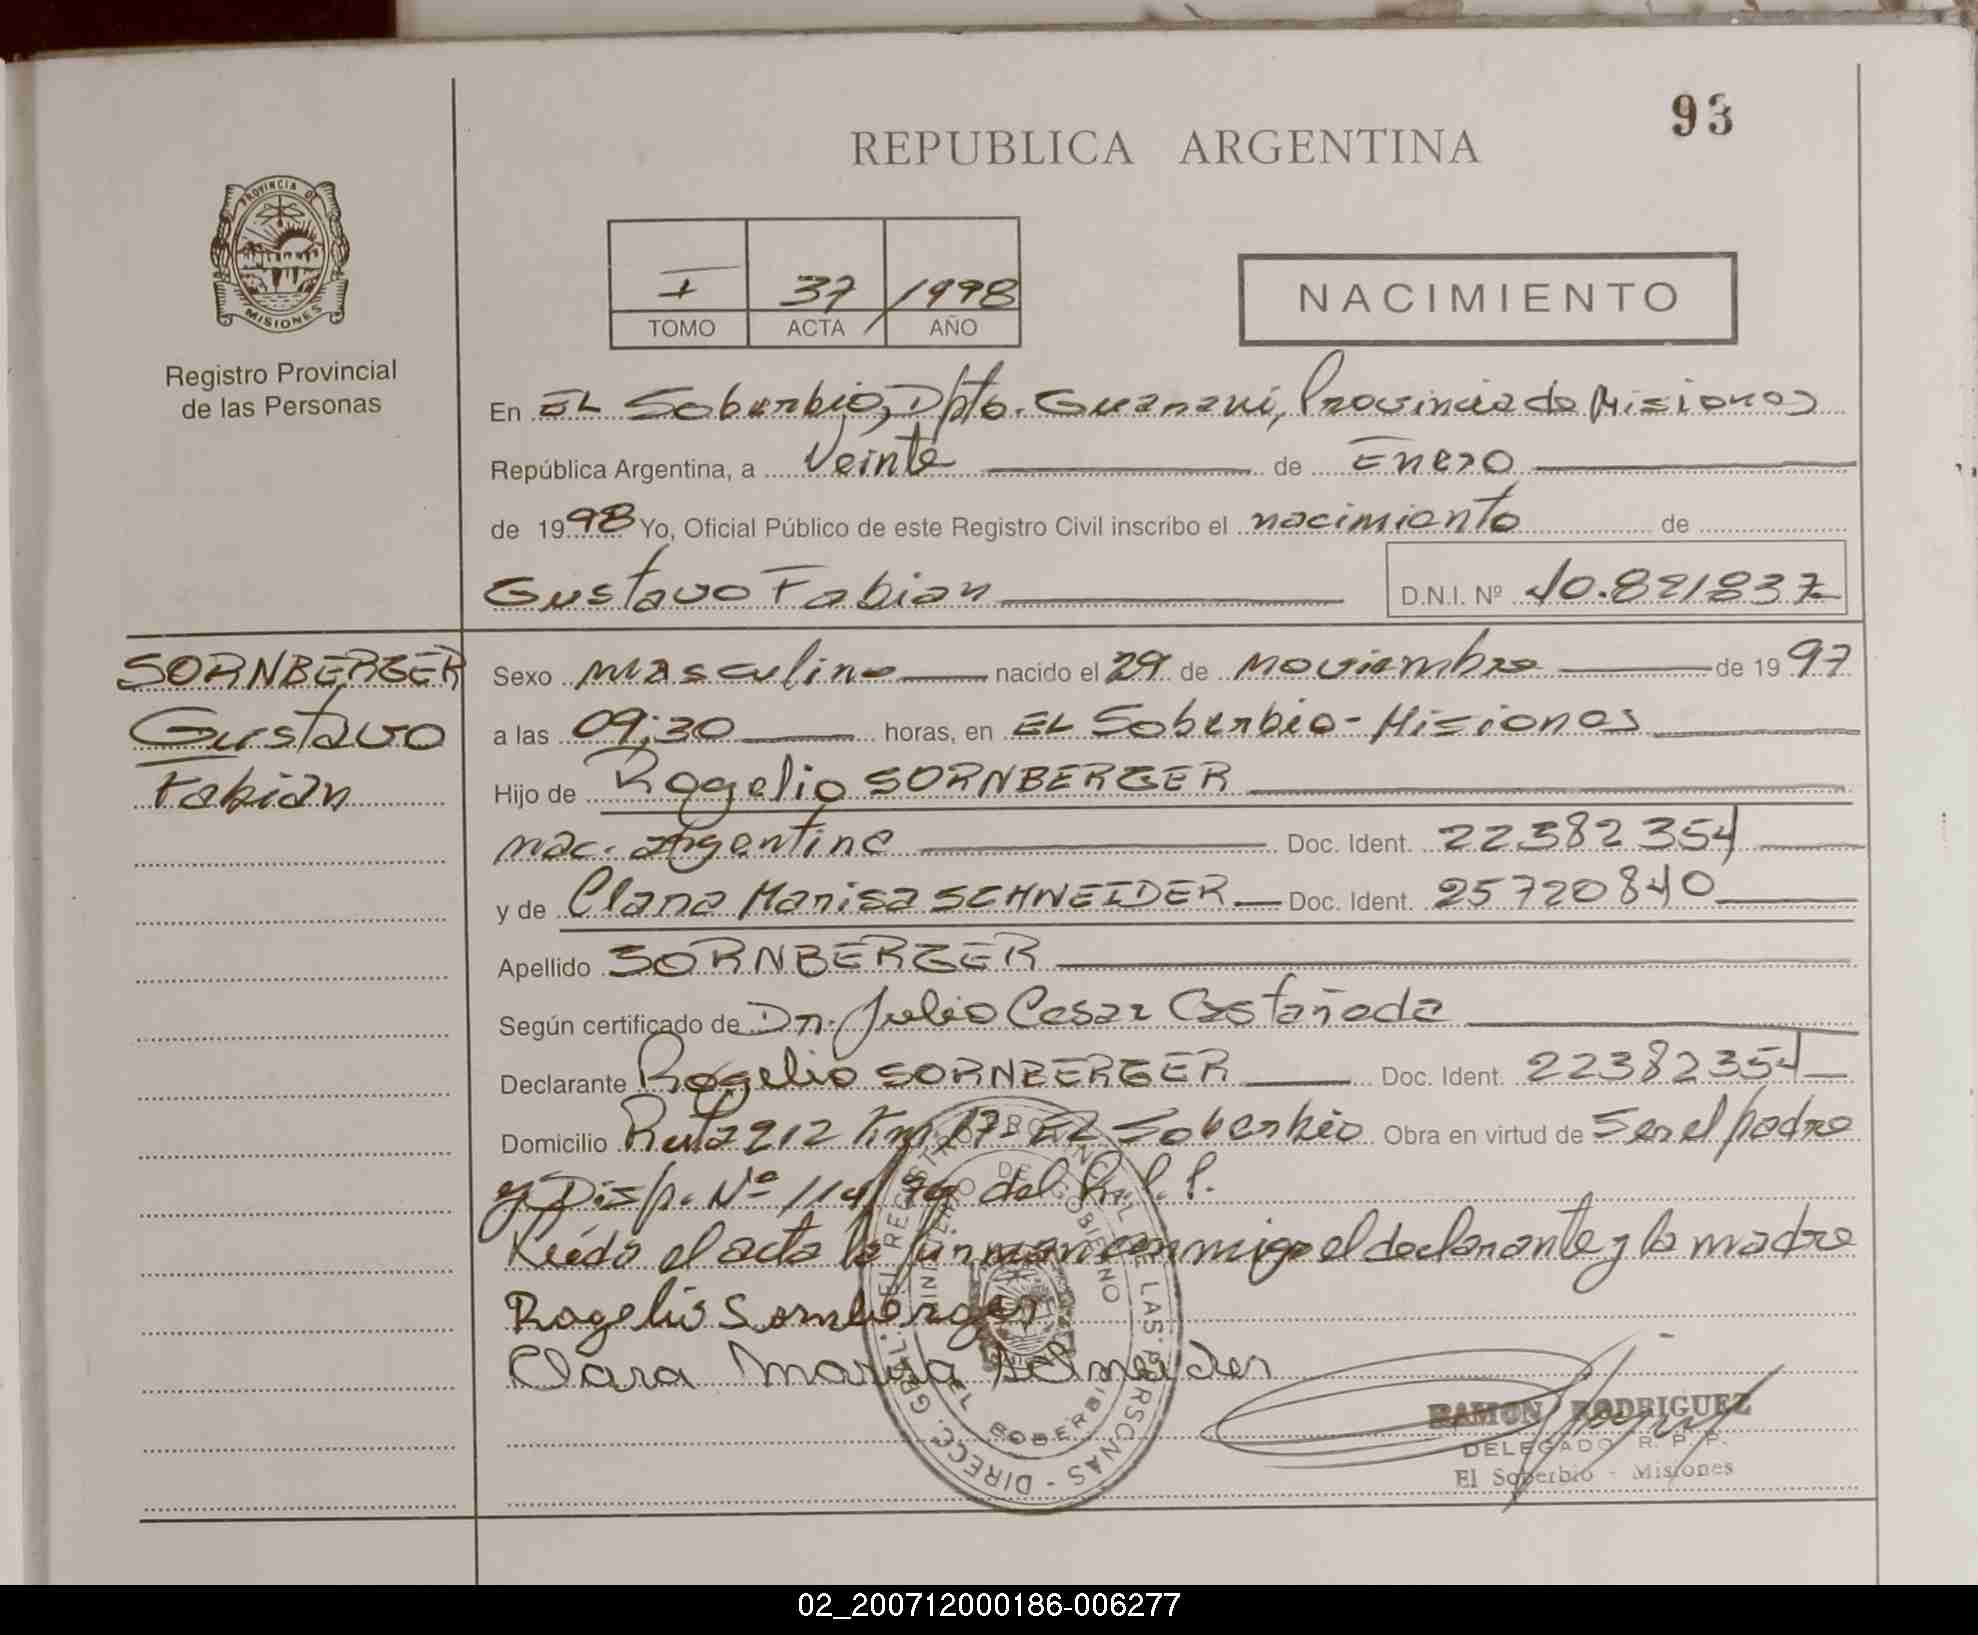 93
REPUBLICA ARGENTINA
PROVINCIA DE
MISIONES
Registro Provincial
de las Personas
I 37 /1998
TOMO ACTA AÑO
NACIMIENTO
En EL Soberbio, Dpto. Guarani, Provincia de Misiones
República Argentina, a Veinte de Enero
de 1998 Yo, Oficial Público de este Registro Civil inscribo el nacimiento de
Gustavo Fabian D.N.I. Nº 40.821837
SORNBERGER
Gustavo
Fabian
Sexo masculino nacido el 29 de noviembre de 1997
a las 09:30 horas, en EL Soberbio - Misiones
Hijo de Rogelio SORNBERGER
nac. argentina Doc. Ident. 22382354
y de Clara Marisa SCHNEIDER Doc. Ident. 25720840
Apellido SORNBERGER
Según certificado de Dr. Julio Cesar Castañeda
Declarante Rogelio SORNBERGER Doc. Ident. 22382354
Domicilio Ruta 212 Km 17 - EL Soberbio Obra en virtud de Ser el padre
y Disp. Nº 114/ del R.P.P.
Leída el acta la firman conmigo el declarante y la madre
Rogelio Sornberger
Clara Marisa Schneider
DIRECC. GRAL. DEL REGISTRO PROVINCIAL DE LAS PERSONAS
MINISTERIO DE GOBIERNO
EL SOBERBIO
RAMON RODRIGUEZ
DELEGADO R. P. P.
El Soberbio - Misiones
02_200712000186-006277